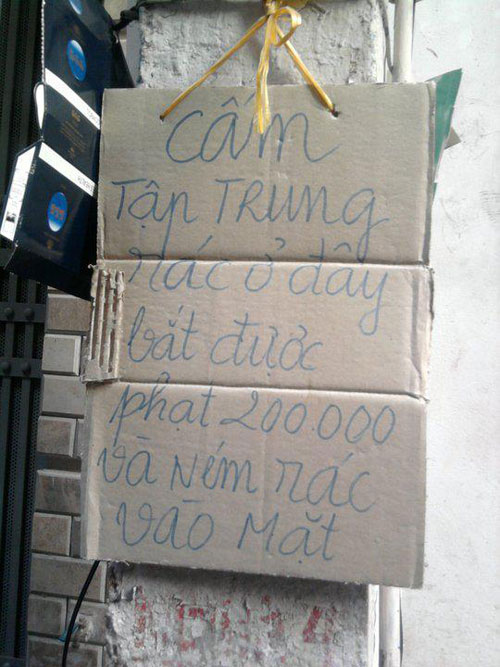 Cấm
Tập TRUNG
rác ở đây
bắt được
phạt 200.000
và Ném rác
vào Mặt